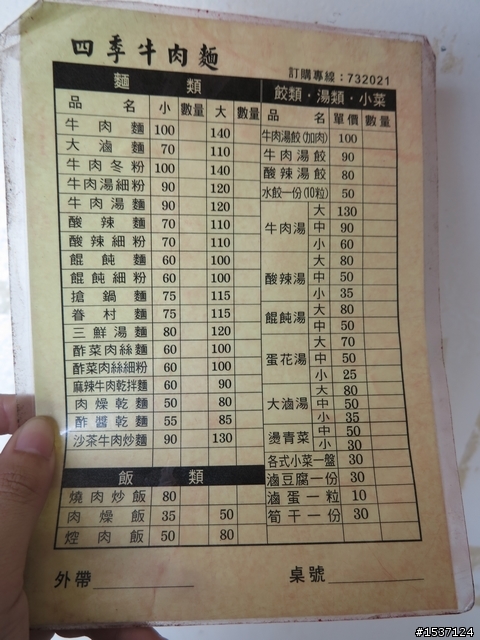 四季牛肉麵
訂購專線：732021
麵 類
品 名 小 數量 大 數量
牛肉麵 100 140
大滷麵 70 110
牛肉冬粉 100 140
牛肉湯細粉 90 120
牛肉湯麵 90 120
酸辣麵 70 110
酸辣細粉 70 110
餛飩麵 60 100
餛飩細粉 60 100
搶鍋麵 75 115
眷村麵 75 115
三鮮湯麵 80 120
酢菜肉絲麵 60 100
酢菜肉絲細粉 60 100
麻辣牛肉乾拌麵 60 90
肉燥乾麵 50 80
酢醬乾麵 55 85
沙茶牛肉炒麵 90 130
飯 類
燒肉炒飯 80
肉燥飯 35 50
焢肉飯 50 80
餃類・湯類・小菜
品 名 單價 數量
牛肉湯餃(加肉) 100
牛肉湯餃 90
酸辣湯餃 80
水餃一份(10粒) 50
牛肉湯 大 130
中 90
小 60
酸辣湯 大 80
中 50
小 35
餛飩湯 大 80
中 50
蛋花湯 大 70
中 50
小 25
大滷湯 大 80
中 50
小 35
燙青菜 中 50
小 30
各式小菜一盤 30
滷豆腐一份 30
滷蛋一粒 10
筍干一份 30
外帶
桌號
#1537124